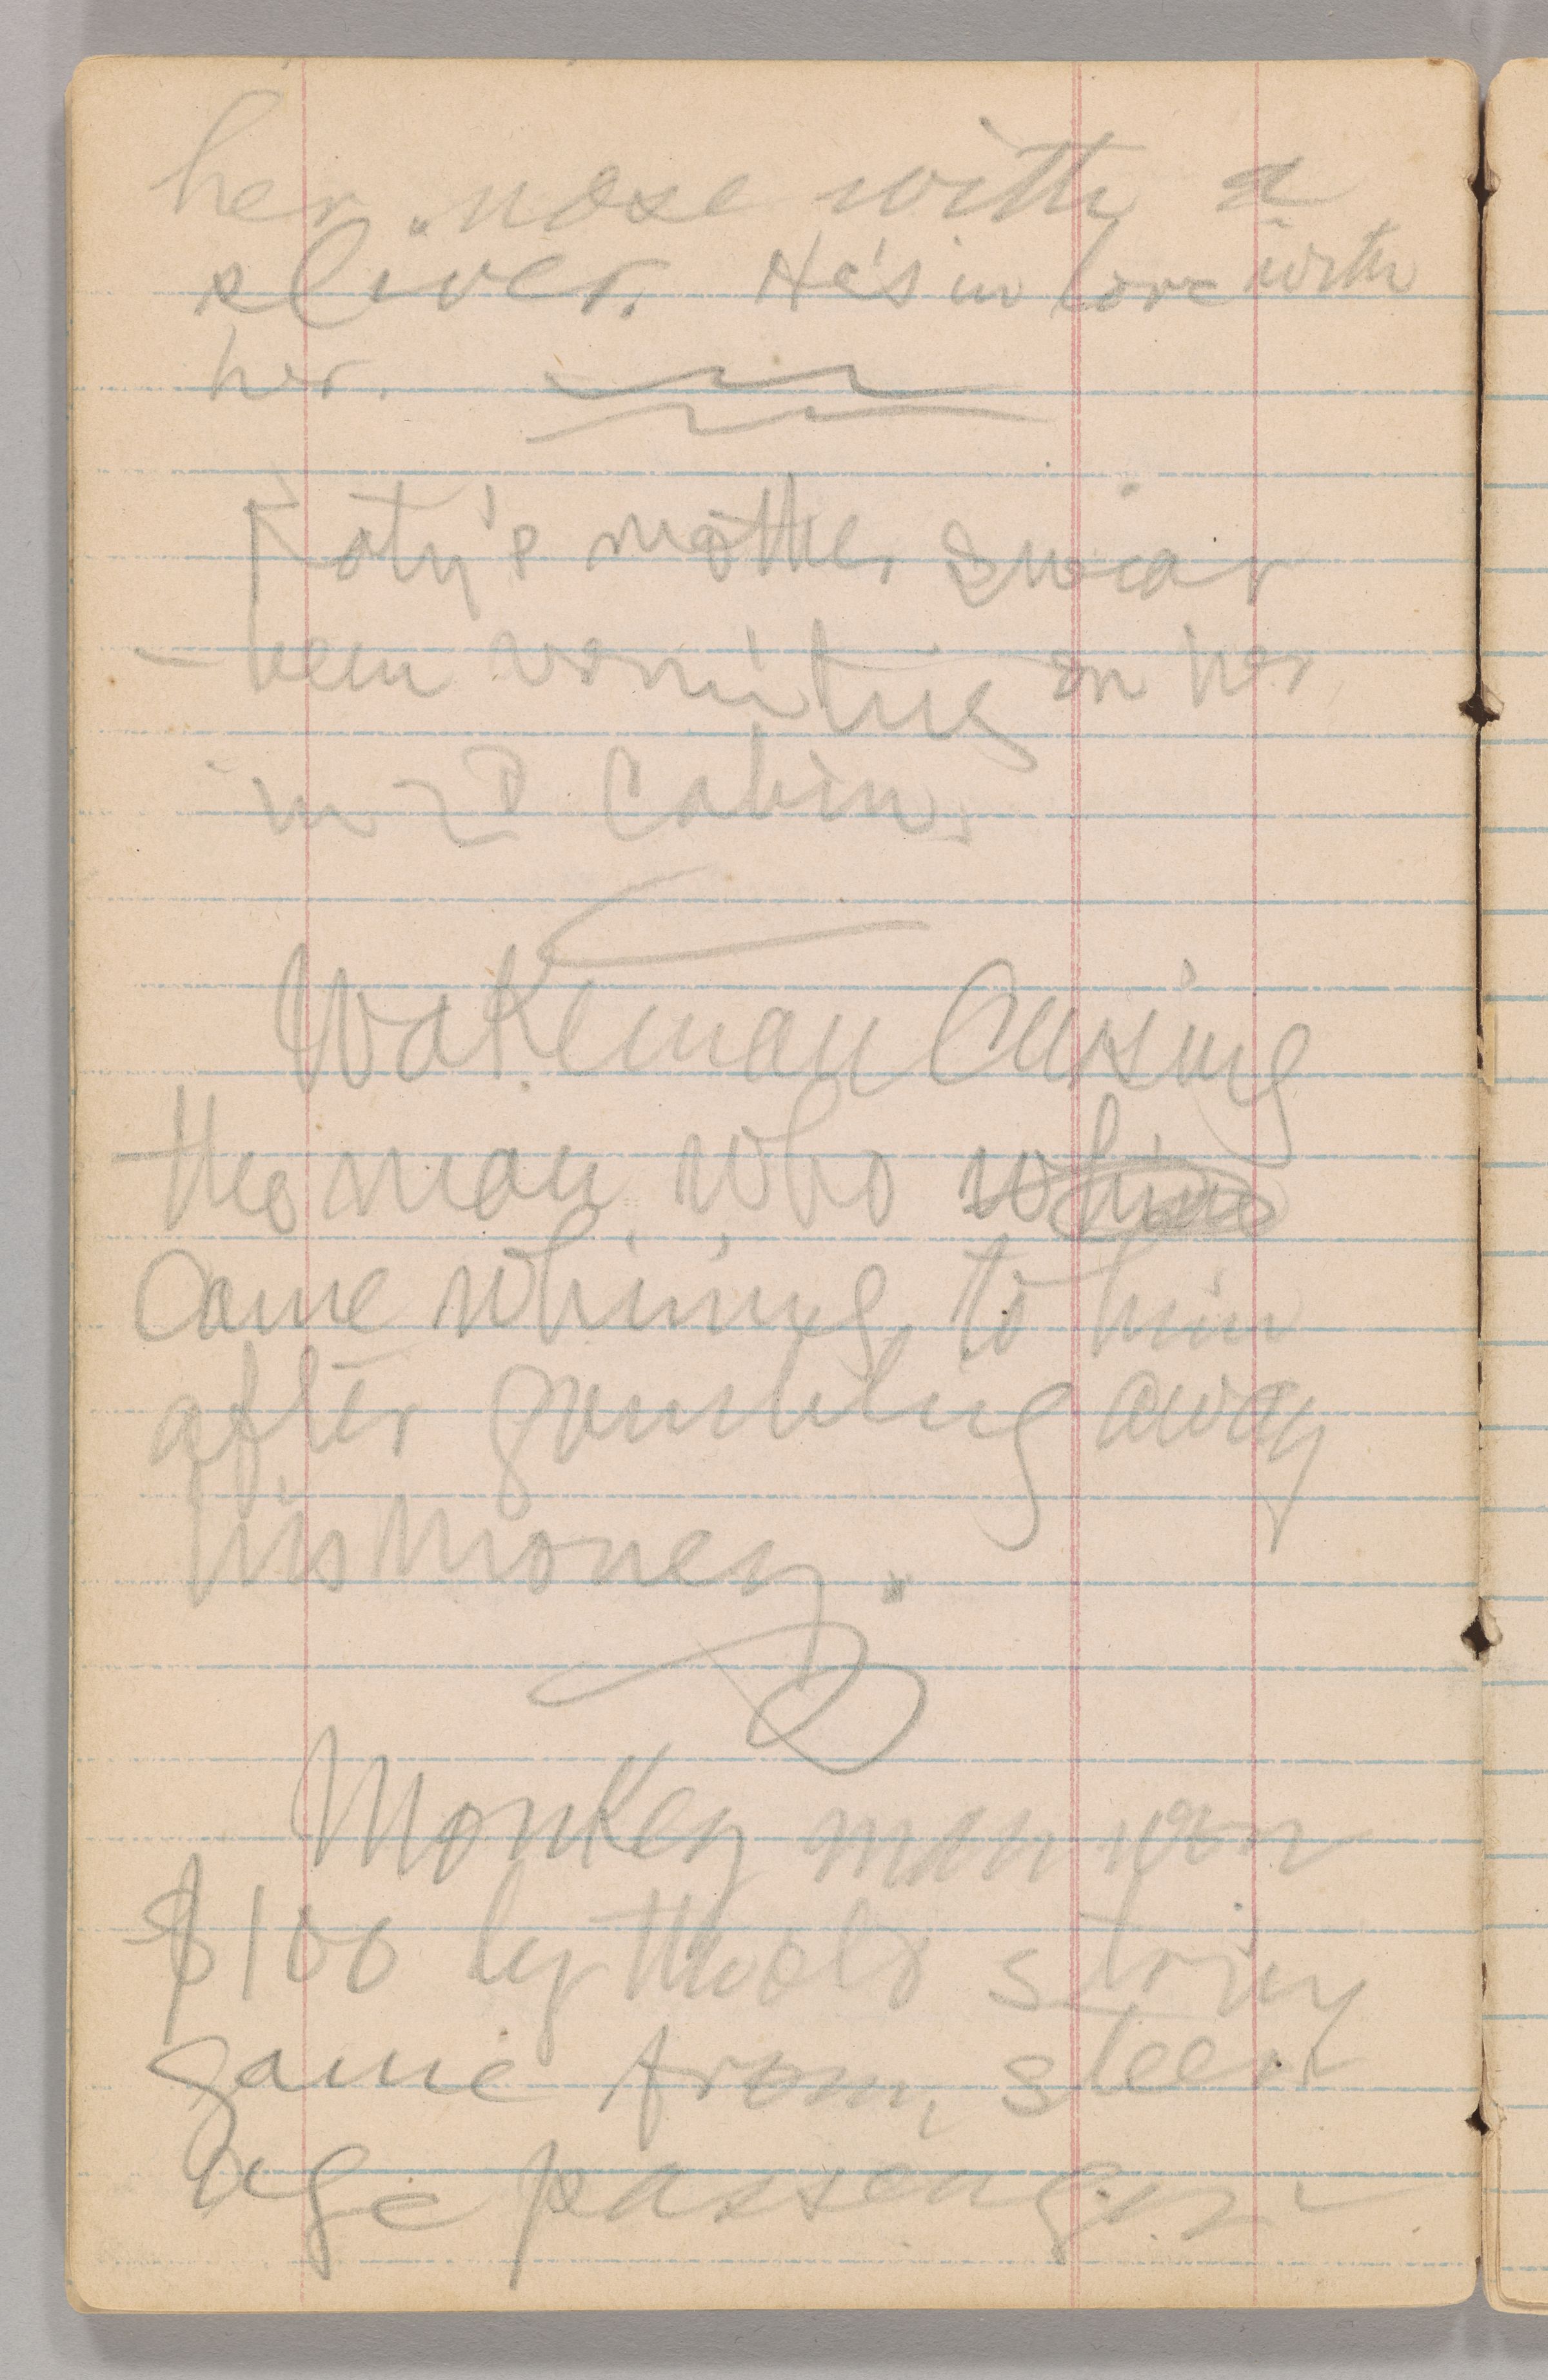 her nose with a
sliver. He's in love with
her.
Katy's mother swear
– been vomiting on her
in 2d Cabin.
Wakeman Cursing
the man who whine
Came whining to him
after gambling away
his money.
Monkey man won
$100 by the old string
game from steer
age passenger